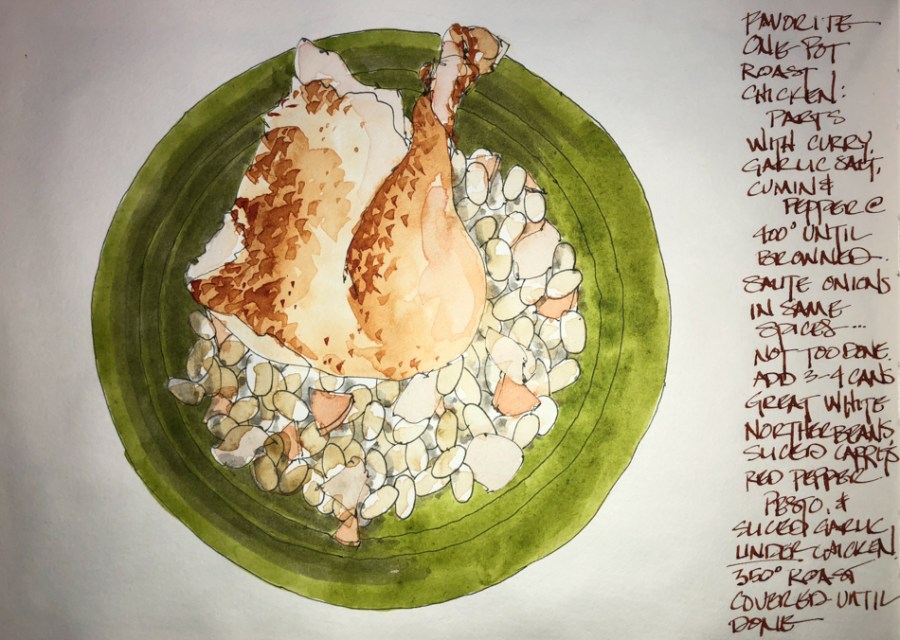 FAVORITE
ONE POT
ROAST
CHICKEN:
PARTS
WITH CURRY,
GARLIC SALT,
CUMIN &
PEPPER @
400° UNTIL
BROWNED.
SAUTE ONIONS
IN SAME
SPICES...
NOT TOO DONE.
ADD 3-4 CANS
GREAT WHITE
NORTHER BEANS,
SLICED CARROTS,
RED PEPPER
PESTO, &
SLICED GARLIC
UNDER CHICKEN.
350° ROAST
COVERED UNTIL
DONE